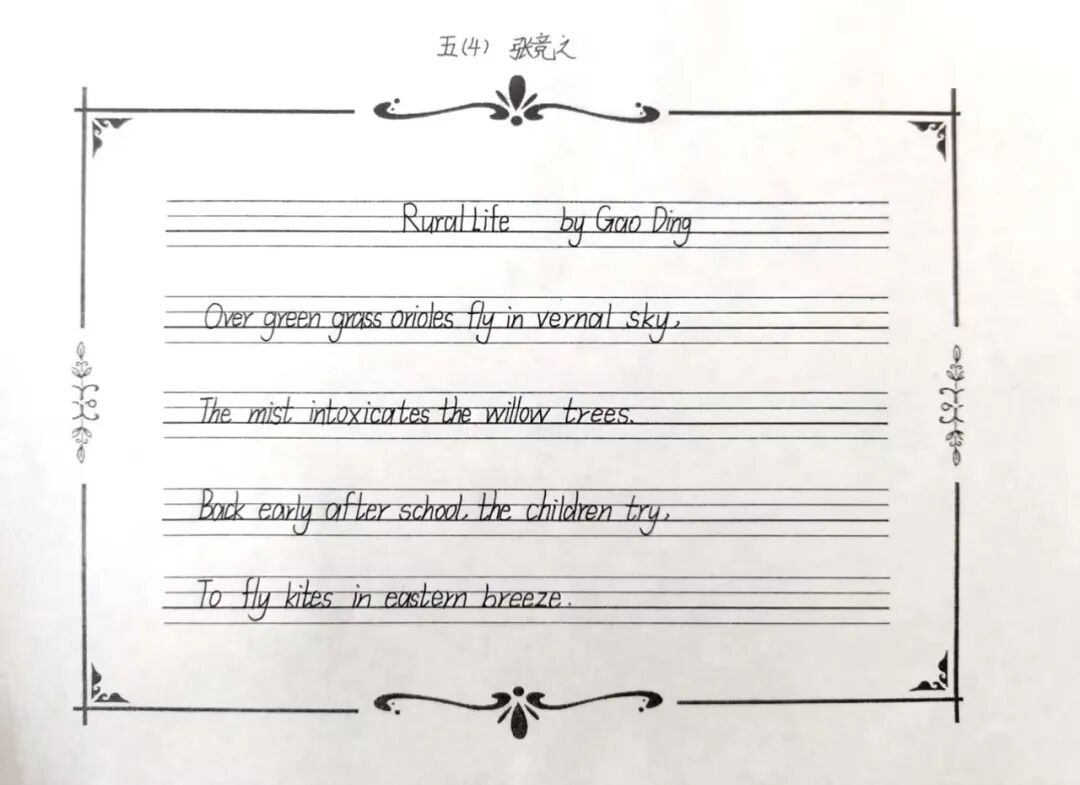 五(4) 张竞之
Rural Life by Gao Ding
Over green grass orioles fly in vernal sky,
The mist intoxicates the willow trees.
Back early after school, the children try,
To fly kites in eastern breeze.